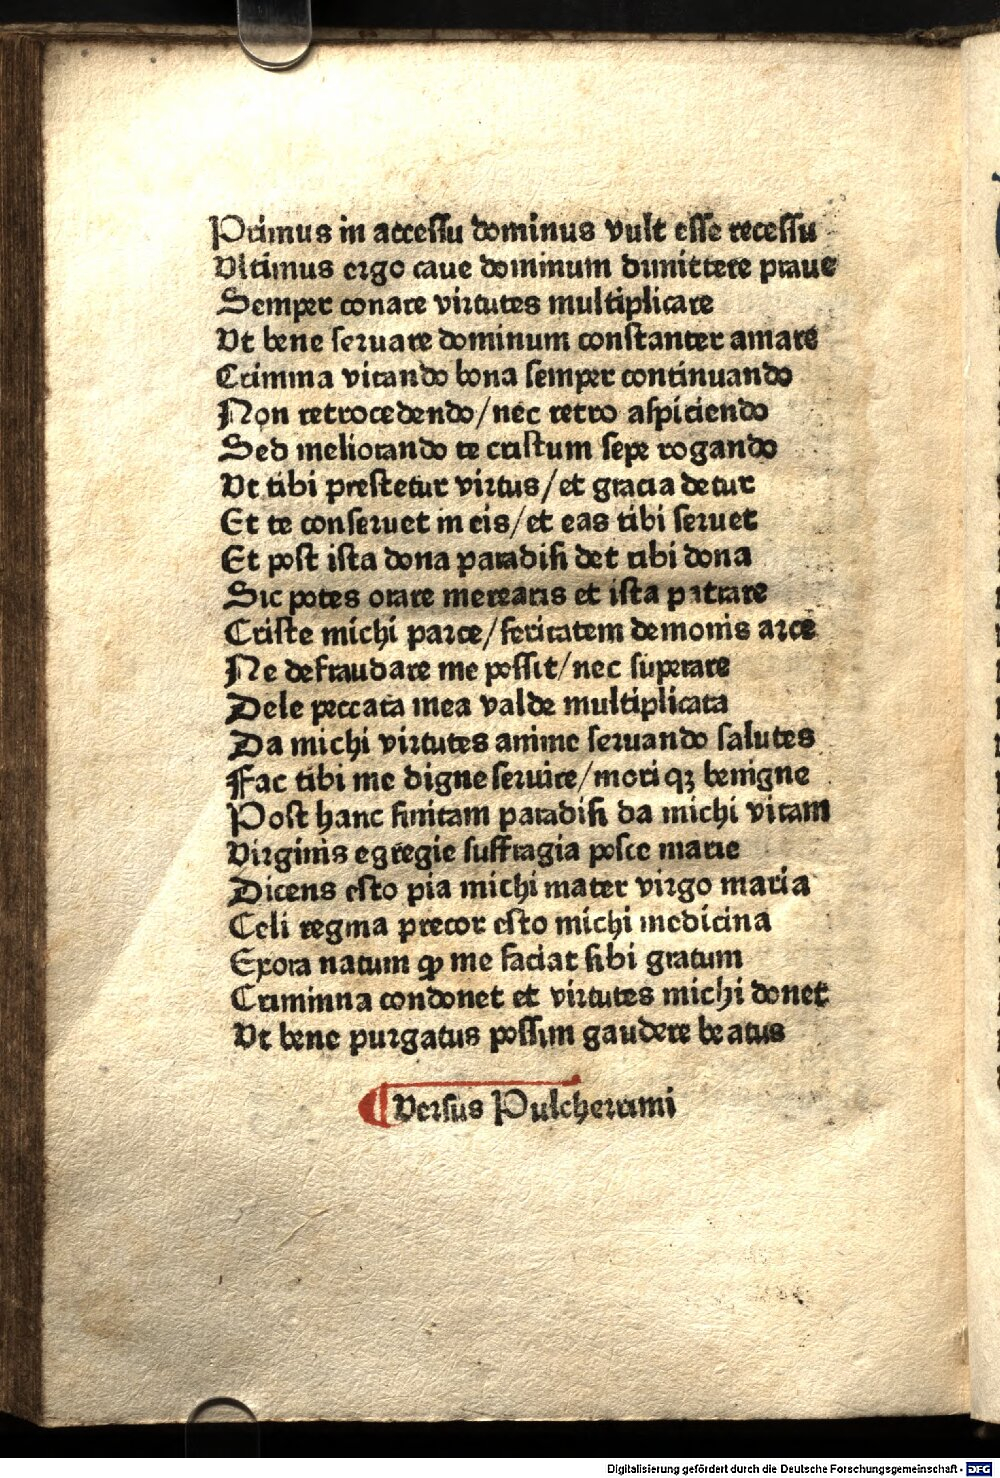 Primus in accessu dominus vult esse recessu
Vltimus ergo caue dominum dimittere praue
Semper conare virtutes multiplicare
Vt bene seruare dominum constanter amare
Crimina vitando bona semper continuando
Non retrocedendo/nec retro aspiciendo
Sed meliorando te cristum sepe rogando
Vt tibi prestetur virtus/et gracia detur
Et te conseruet in eis/et eas tibi seruet
Et post ista dona paradisi det tibi dona
Sic potes orare merearis et ista patrare
Criste michi parce/feritatem demonis arce
Ne defraudare me possit/nec superare
Dele peccata mea valde multiplicata
Da michi virtutes anime seruando salutes
Fac tibi me digne seruire/mori qꝫ benigne
Post hanc finitam paradisi da michi vitam
Virginis egregie suffragia posce marie
Dicens esto pia michi mater virgo maria
Celi regina precor esto michi medicina
Exora natum ꝙ me faciat sibi gratum
Criminna condonet et virtutes michi donet
Vt bene purgatus possim gaudere beatus
Versus Pulcherrimi
Digitalisierung gefördert durch die Deutsche Forschungsgemeinschaft - DFG